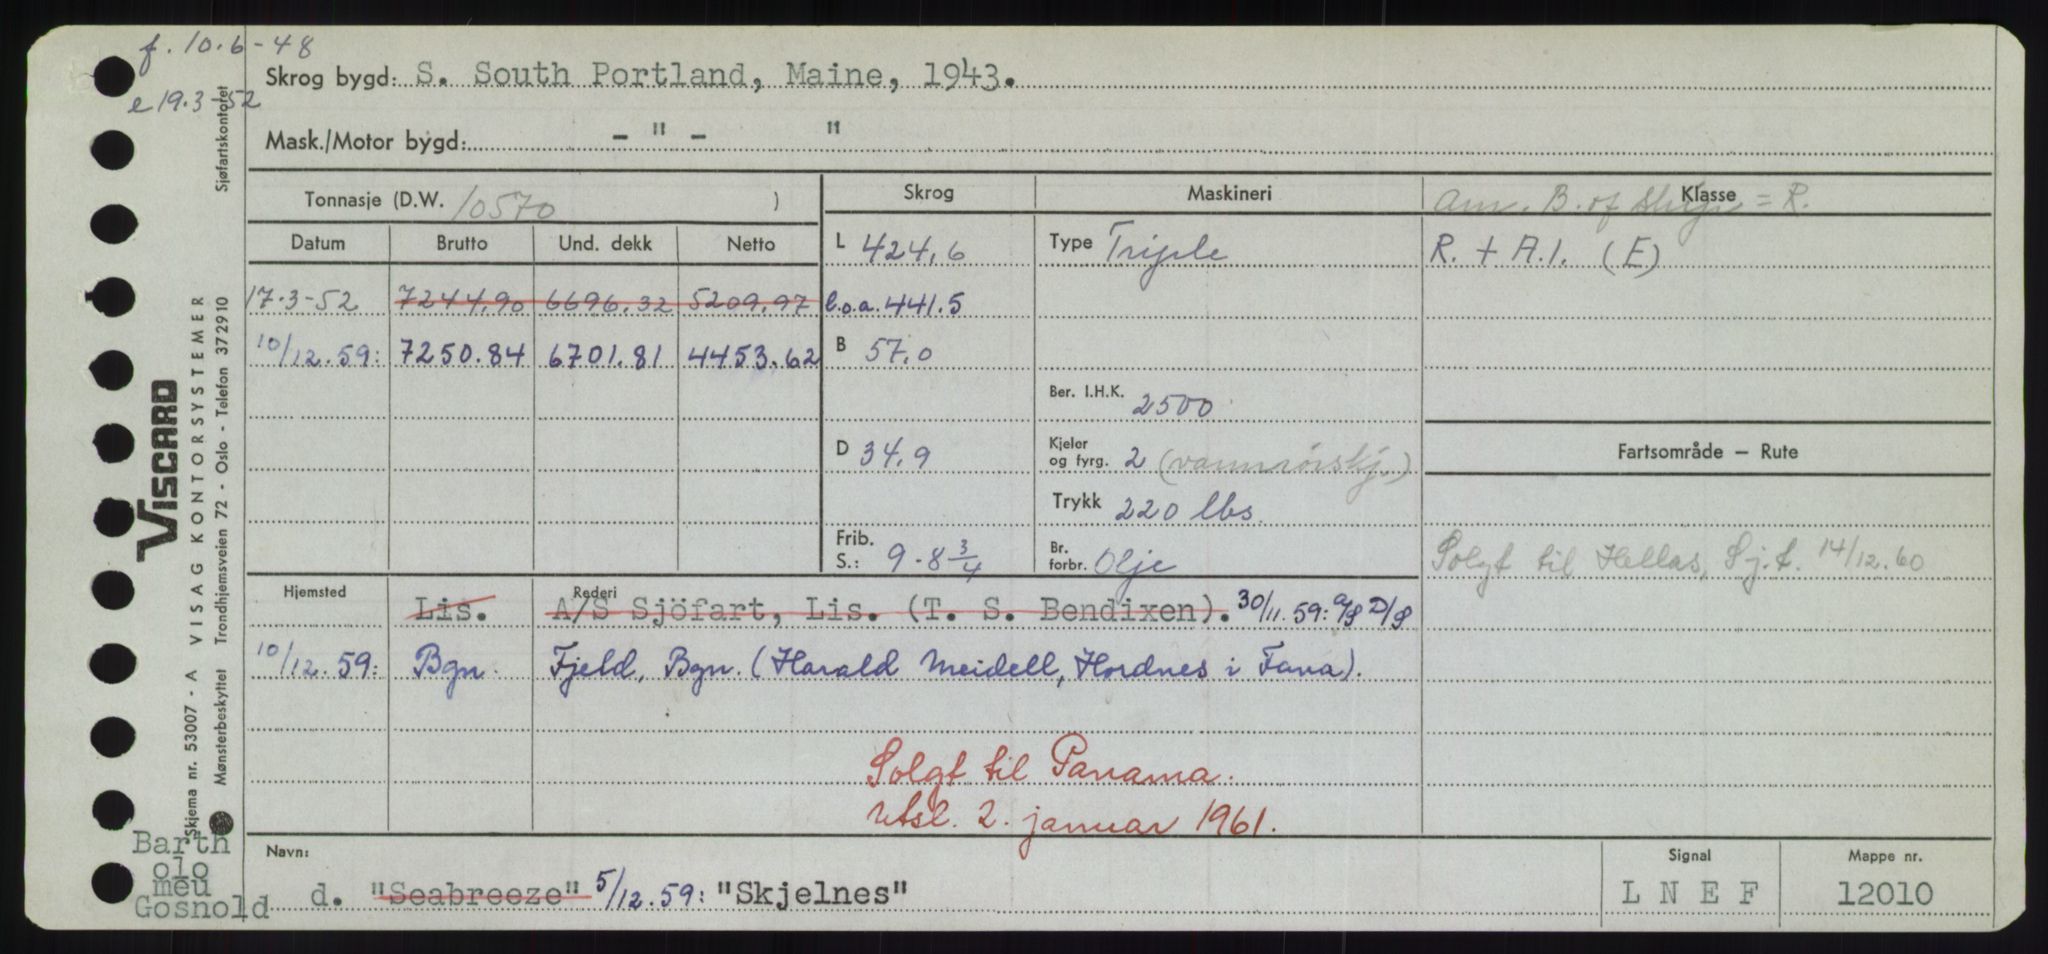 f. 10.6-48
e 19.3-52
Skrog bygd: S. South Portland, Maine, 1943.
Mask./Motor bygd: - " - "
Tonnasje (D.W. 10570 )
Datum Brutto Und. dekk Netto
17.3-52 7244,90 6696,32 5209,97
10/12.59: 7250.84 6701.81 4453.62
Skrog
L 424,6
l.o.a. 441.5
B 57,0
D 34,9
Frib. S.: 9-8 3/4
Maskineri
Type Triple
Ber. I.H.K. 2500
Kjeler og fyrg. 2 (vannrørskj.)
Trykk 220 lbs.
Br. forbr. Olje
Klasse
Am. B. of Ship = R.
R. + A.1. (E)
Fartsområde – Rute
Solgt til Hellas, Sj.t. 14/12.60
Hjemsted Rederi
Lis. A/S Sjöfart, Lis. (T. S. Bendixen). 30/11.59: A/S D/S
10/12.59: Bgn. Fjeld, Bgn. (Harald Meidell, Hordnes i Fana).
Solgt til Panama.
Utsl. 2. januar 1961.
Navn:
Barth
olo
meu
Gosnold
d. "Seabreeze" 5/12.59: "Skjelnes"
Signal
L N E F
Mappe nr.
12010
Sjøfartskontoret
VISCARD
Skjema nr. 53007 - A VISAG KONTORSYSTEMER
Mønsterbeskyttet Trondhjemsveien 72 - Oslo - Telefon 372910